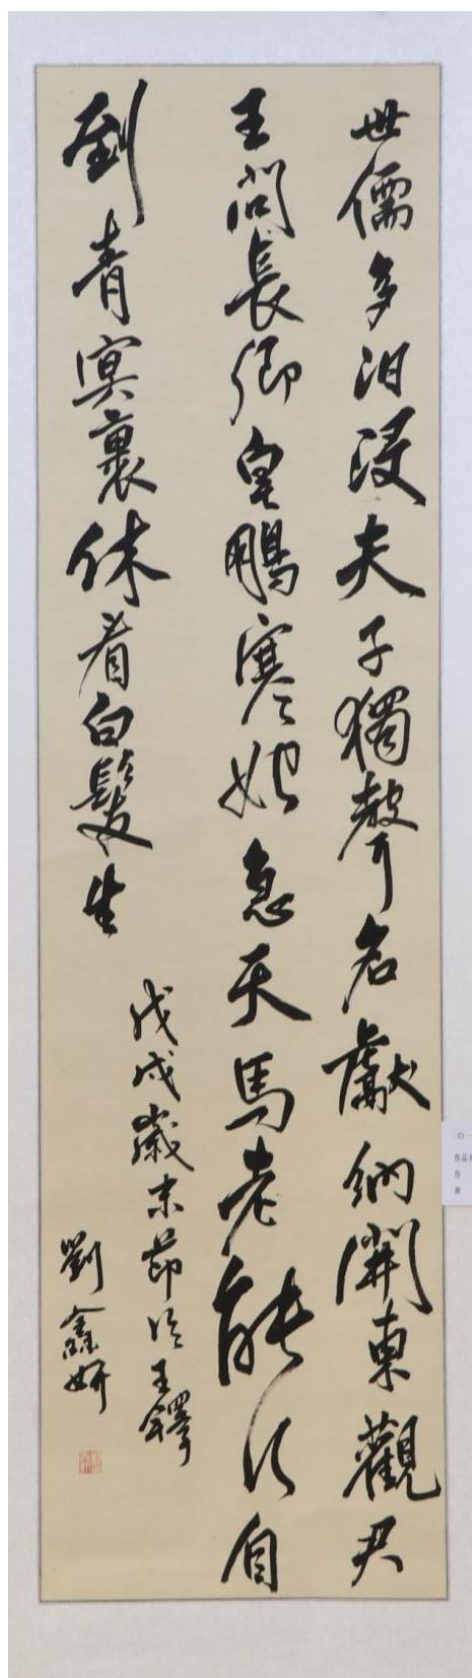 世儒多汩没夫子獨聲名獻納開東觀君
王問長卿皂鵰寒始急天馬老能行自
到青冥裏休看白髮生
戊戌歲末節臨王鐸
劉鑫妍